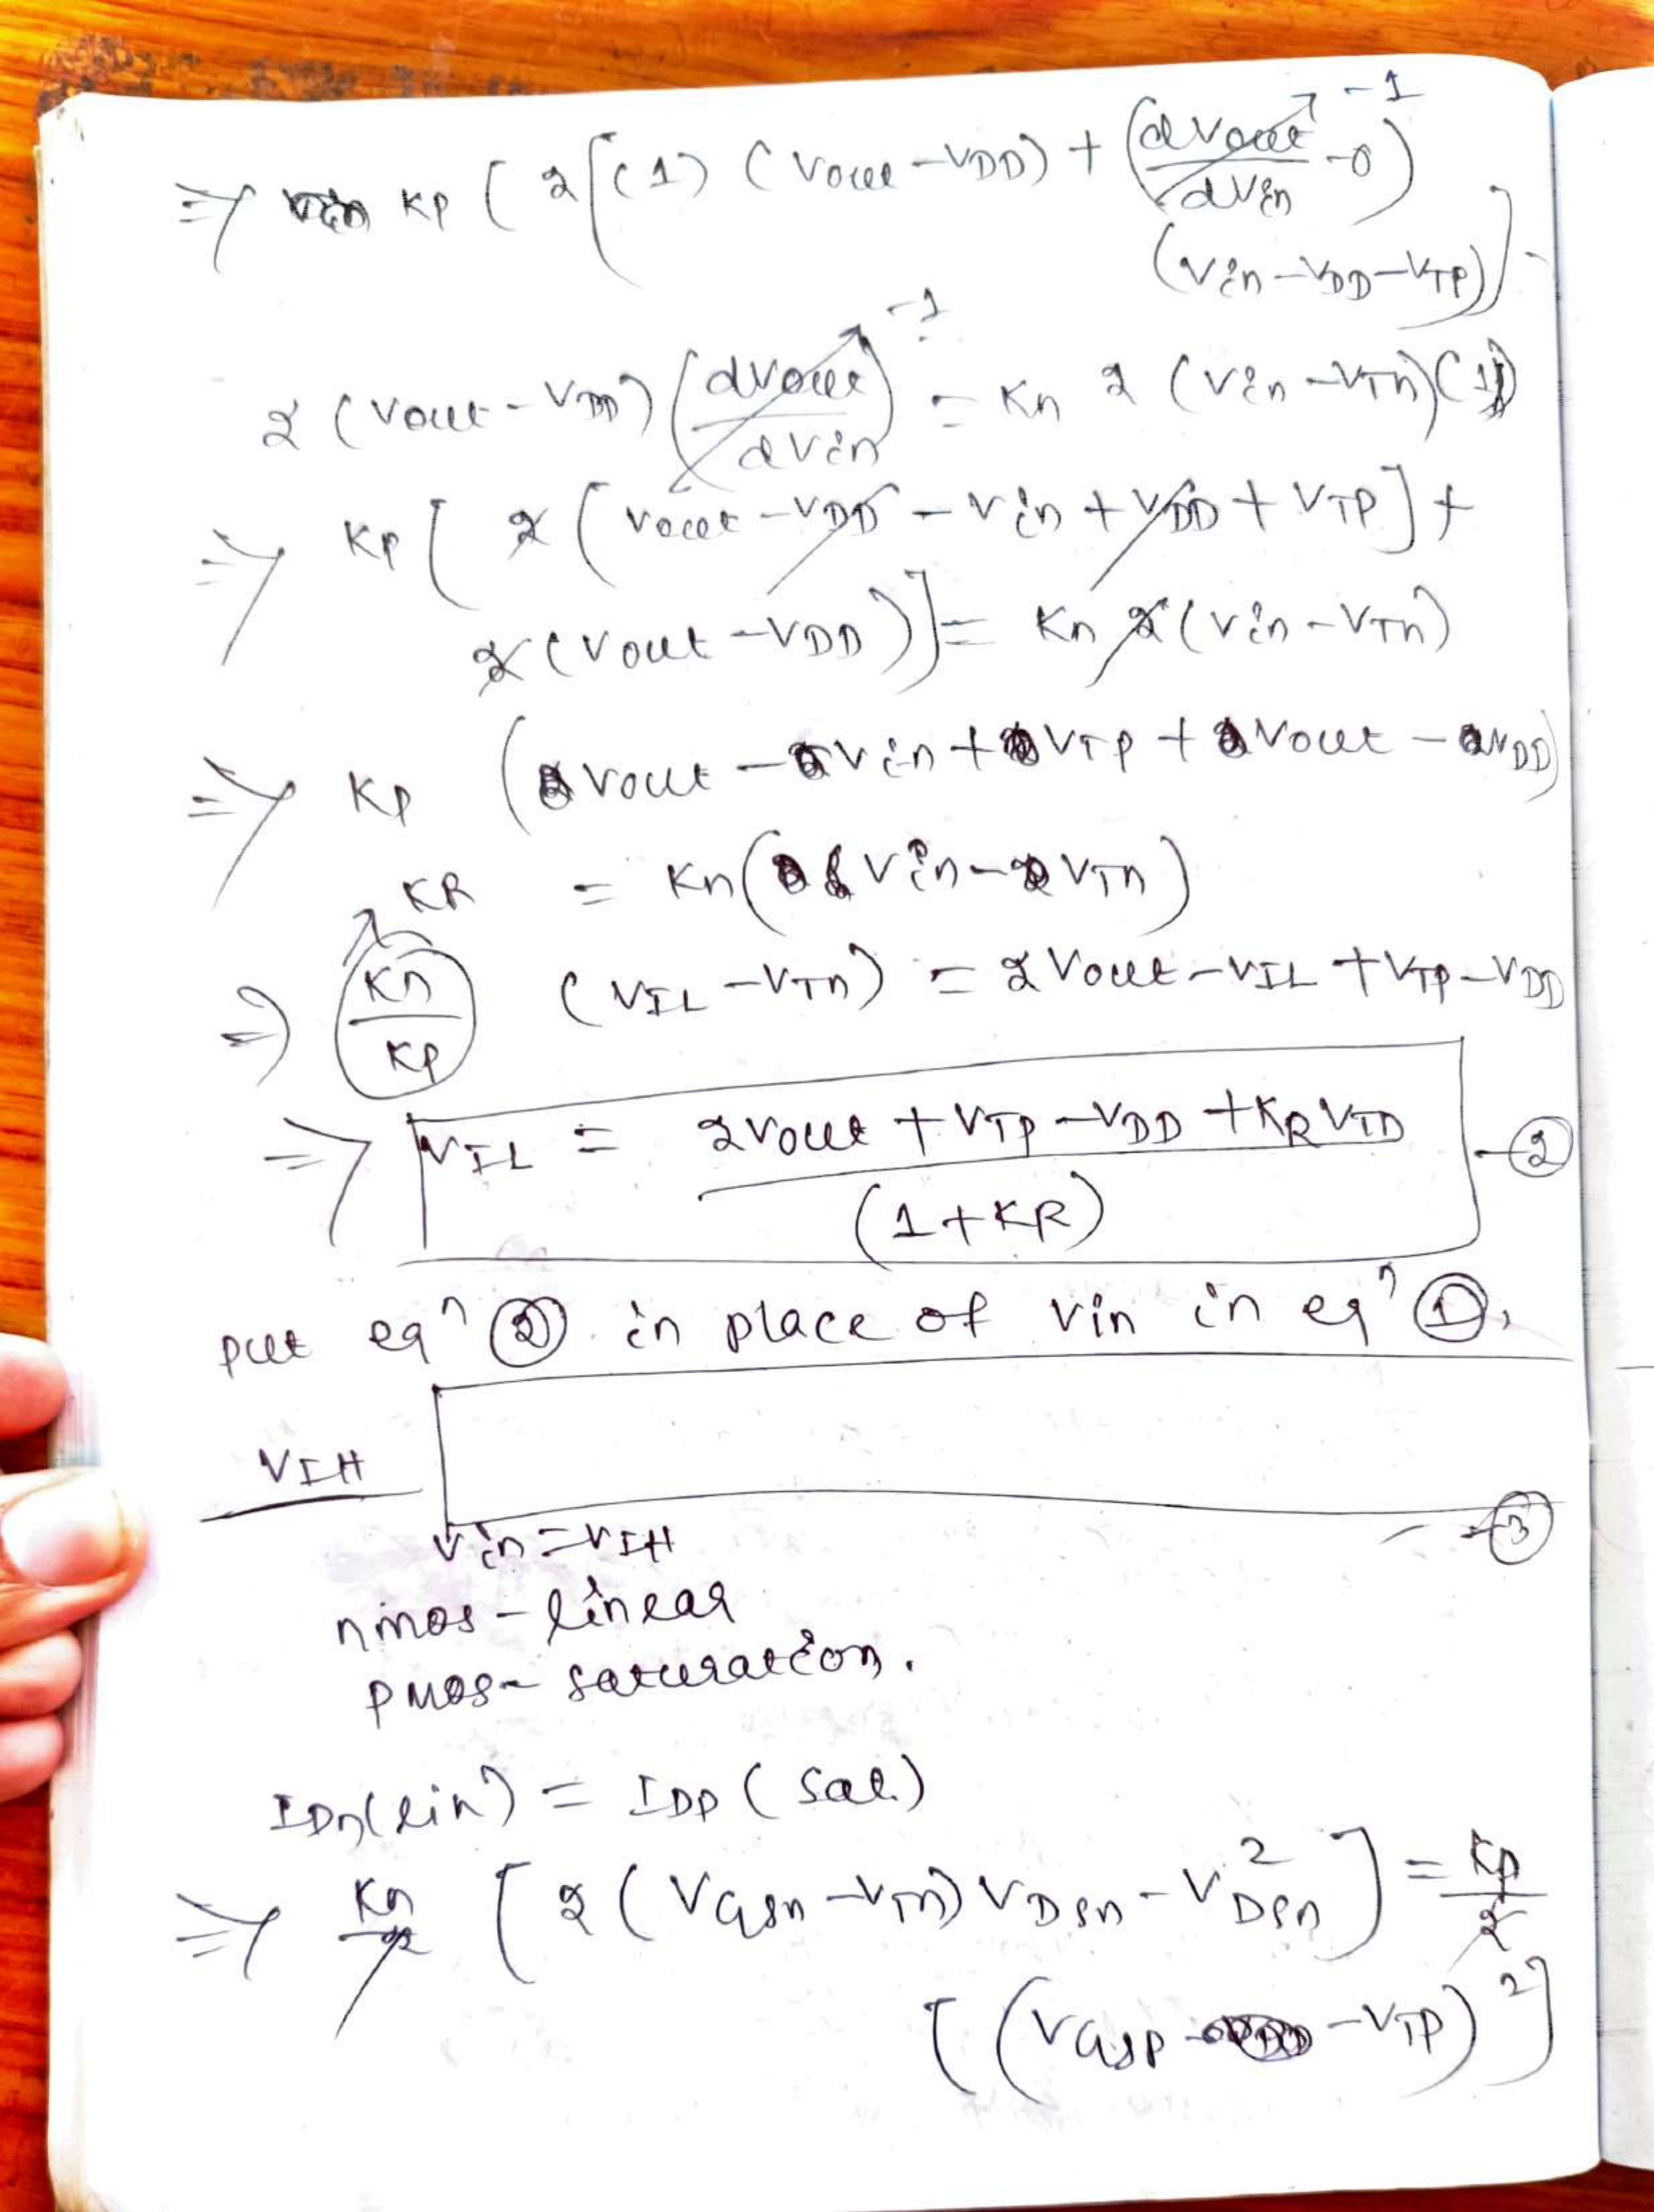 ⇒ Kp ( 2 [ (1) (Vout - VDD) + (dVout/dVin - 0) -1
(Vin - VDD - VTP) ] -
2 (Vout - VDD) (dVout/dVin) -1 = Kn 2 (Vin - VTn) (1)
⇒ Kp [ 2 ( Vout - VDD - Vin + VDD + VTP ] +
2 (Vout - VDD) ) ] = Kn 2 (Vin - VTn)
⇒ Kp ( Vout - Vin + VTP + Vout - VDD )
= Kn ( Vin - VTn )
KR
⇒ (Kn/Kp) (VIL - VTn) = 2Vout - VIL + VTP - VDD
⇒ VIL = (2Vout + VTP - VDD + KR VTn) / (1 + KR) - ②
put eqn ② in place of Vin in eqn ①,
VIH
- ③
Vin = VIH
nmos - linear
pmos - saturation.
IDn(lin) = IDP (sat.)
⇒ Kn/2 [ 2 ( VGSn - VTn) VDSn - V²DSn ] = Kp/2
[ (VGSP - VTP)² ]